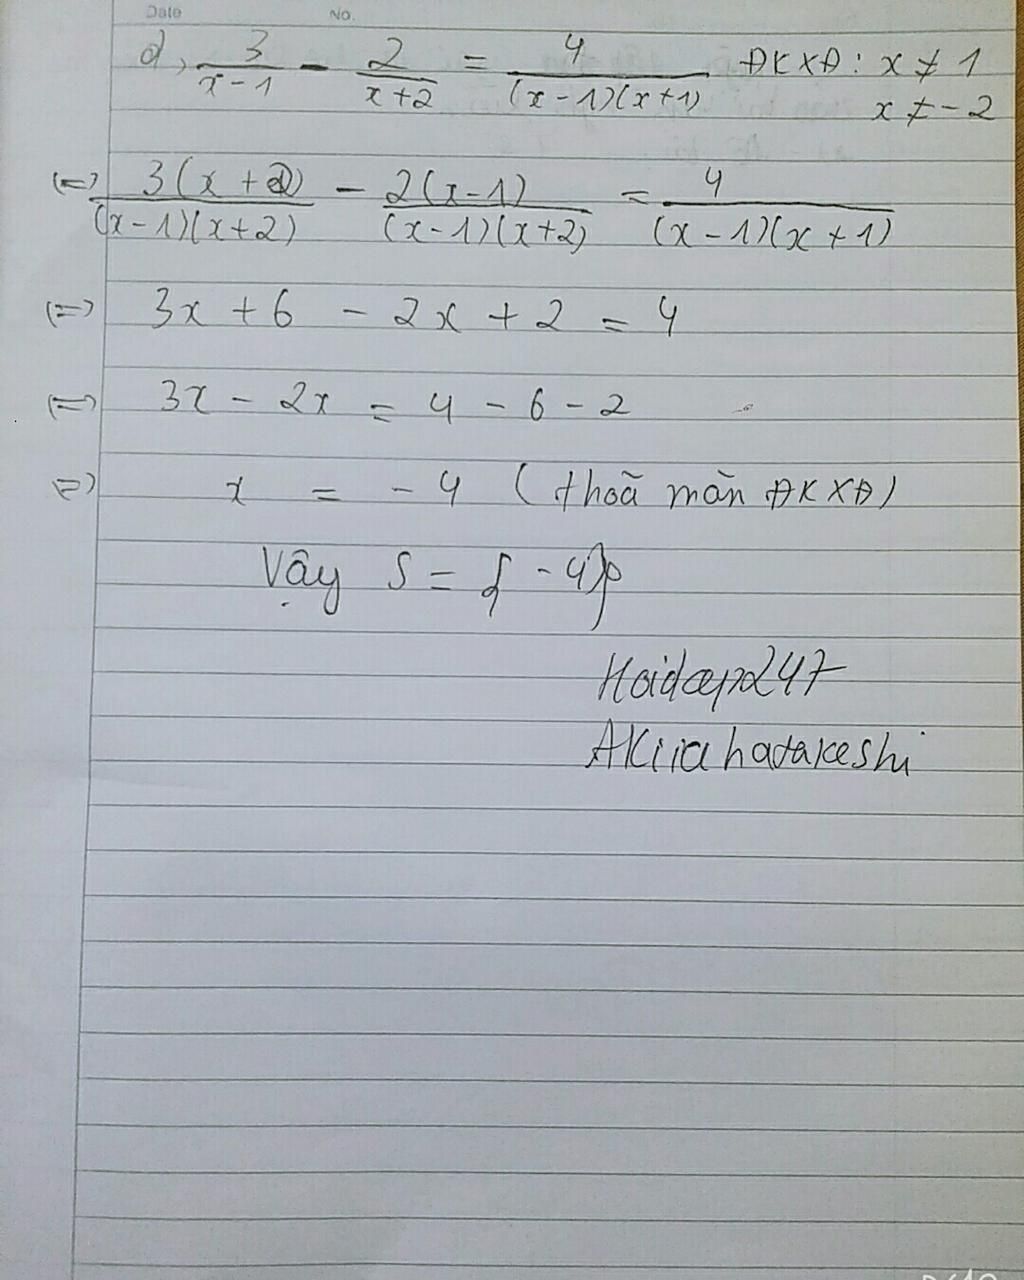 Date No.
d, 3/(x-1) - 2/(x+2) = 4/((x-1)(x+1)) ĐKXĐ: x ≠ 1
x ≠ -2
(=) 3(x+2)/((x-1)(x+2)) - 2(x-1)/((x-1)(x+2)) = 4/((x-1)(x+1))
(=) 3x + 6 - 2x + 2 = 4
(=) 3x - 2x = 4 - 6 - 2
=) x = -4 (thoã mãn ĐKXĐ)
Vậy S = {-4}
Hoidap247
Akirahatakeshi